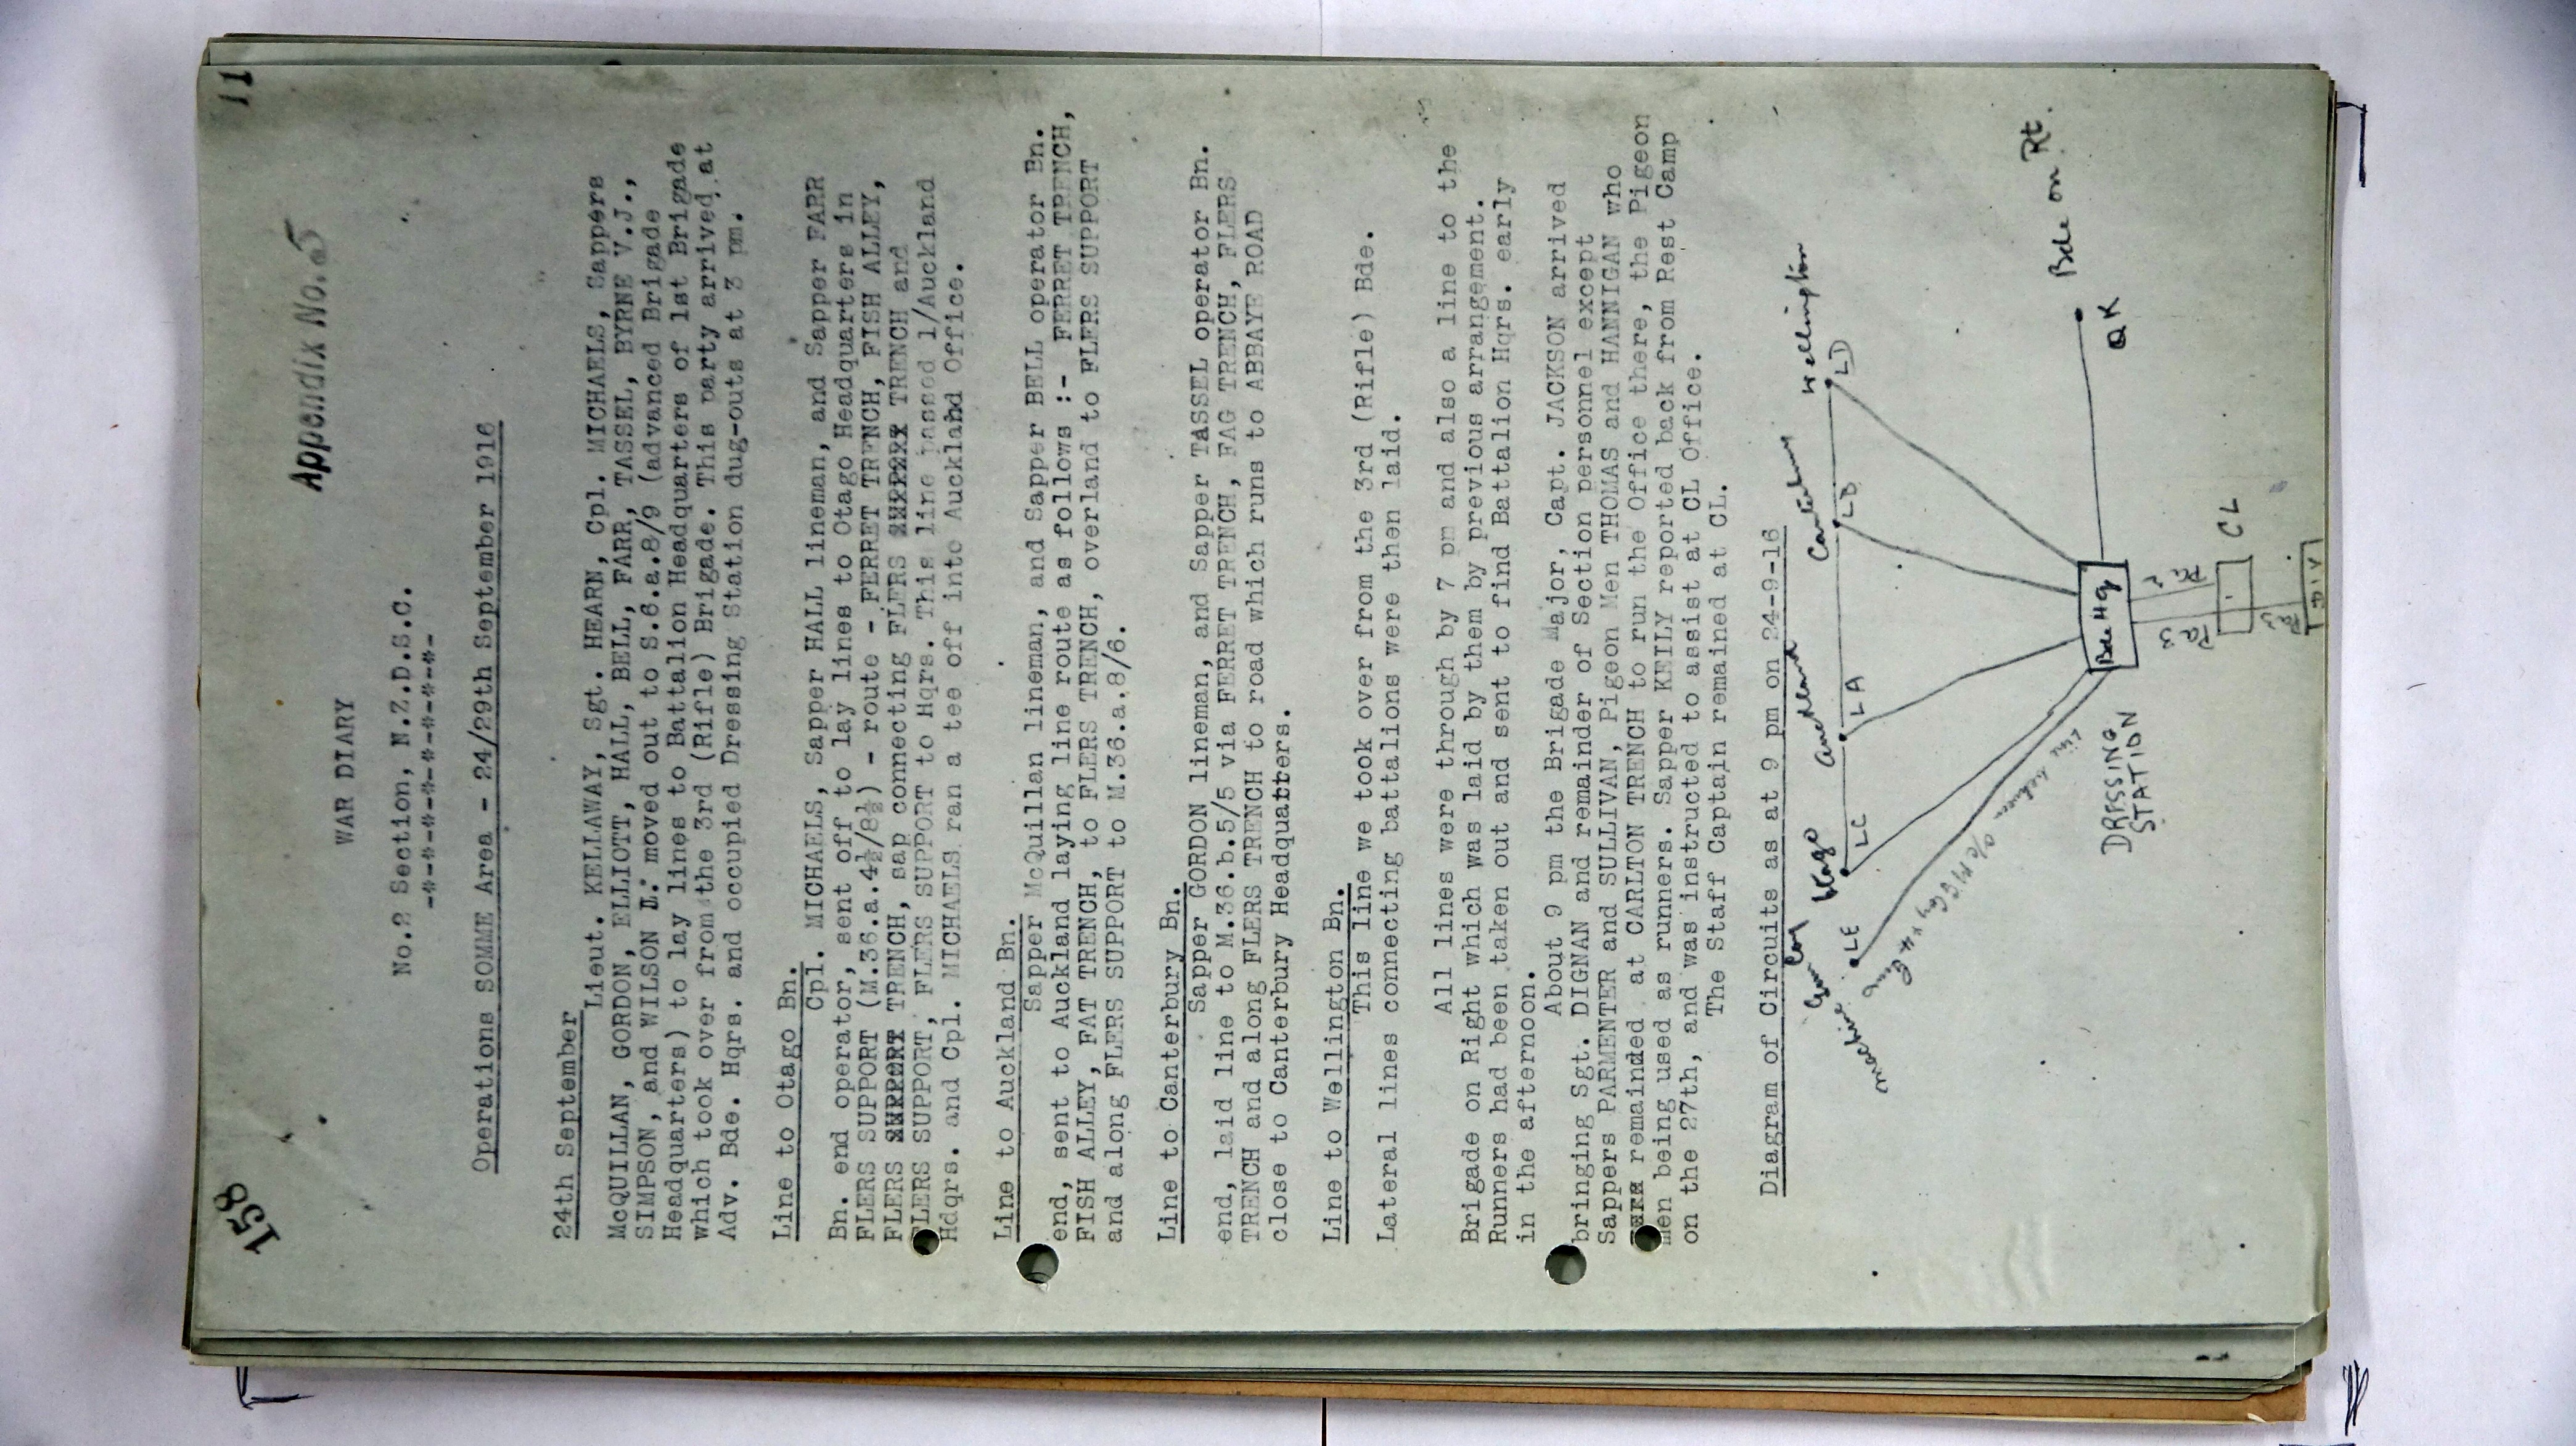 158
11
Appendix No. 5
WAR DIARY
No.2 Section, N.Z.D.S.C.
-*-*-*-*-*-*-*-*-*-
Operations SOMME Area - 24/29th September 1916
24th September
Lieut. KELLAWAY, Sgt. HEARN, Cpl. MICHAELS, Sappers
McQUILLAN, GORDON, ELLIOTT, HALL, BELL, FARR, TASSEL, BYRNE V.J.,
SIMPSON, and WILSON D. moved out to S.6.a.8/9 (advanced Brigade
Headquarters) to lay lines to Battalion Headquarters of 1st Brigade
which took over from the 3rd (Rifle) Brigade. This party arrived at
Adv. Bde. Hqrs. and occupied Dressing Station dug-outs at 3 pm.
Line to Otago Bn.
Cpl. MICHAELS, Sapper HALL lineman, and Sapper FARR
Bn. end operator, sent off to lay lines to Otago Headquarters in
FLERS SUPPORT (M.36.a.4½/8½) - route - FERRET TRENCH, FISH ALLEY,
FLERS TRENCH, sap connecting FLERS TRENCH and
FLERS SUPPORT, FLERS SUPPORT to Hqrs. This line passed 1/Auckland
Hdqrs. and Cpl. MICHAELS ran a tee off into Auckland Office.
Line to Auckland Bn.
Sapper McQuillan lineman, and Sapper BELL operator Bn.
end, sent to Auckland laying line route as follows :- FERRET TRENCH,
FISH ALLEY, FAT TRENCH, to FLERS TRENCH, overland to FLERS SUPPORT
and along FLERS SUPPORT to M.36.a.8/6.
Line to Canterbury Bn.
Sapper GORDON lineman, and Sapper TASSEL operator Bn.
end, laid line to M.36.b.5/5 via FERRET TRENCH, FAG TRENCH, FLERS
TRENCH and along FLERS TRENCH to road which runs to ABBAYE ROAD
close to Canterbury Headquatters.
Line to Wellington Bn.
This line we took over from the 3rd (Rifle) Bde.
Lateral lines connecting battalions were then laid.
All lines were through by 7 pm and also a line to the
Brigade on Right which was laid by them by previous arrangement.
Runners had been taken out and sent to find Battalion Hqrs. early
in the afternoon.
About 9 pm the Brigade Major, Capt. JACKSON arrived
bringing Sgt. DIGNAN and remainder of Section personnel except
Sappers PARMENTER and SULLIVAN, Pigeon Men THOMAS and HANNIGAN who
remained at CARLTON TRENCH to run the Office there, the Pigeon
men being used as runners. Sapper KEILY reported back from Rest Camp
on the 27th, and was instructed to assist at CL Office.
The Staff Captain remained at CL.
Diagram of Circuits as at 9 pm on 24-9-16
Machine Gun Coy
Otago
Auckland
Canterbury
Wellington
LE
LC
LA
LB
LD
Bde on Rt.
QK
Bde Hq
DRESSING
STATION
CL
DIV